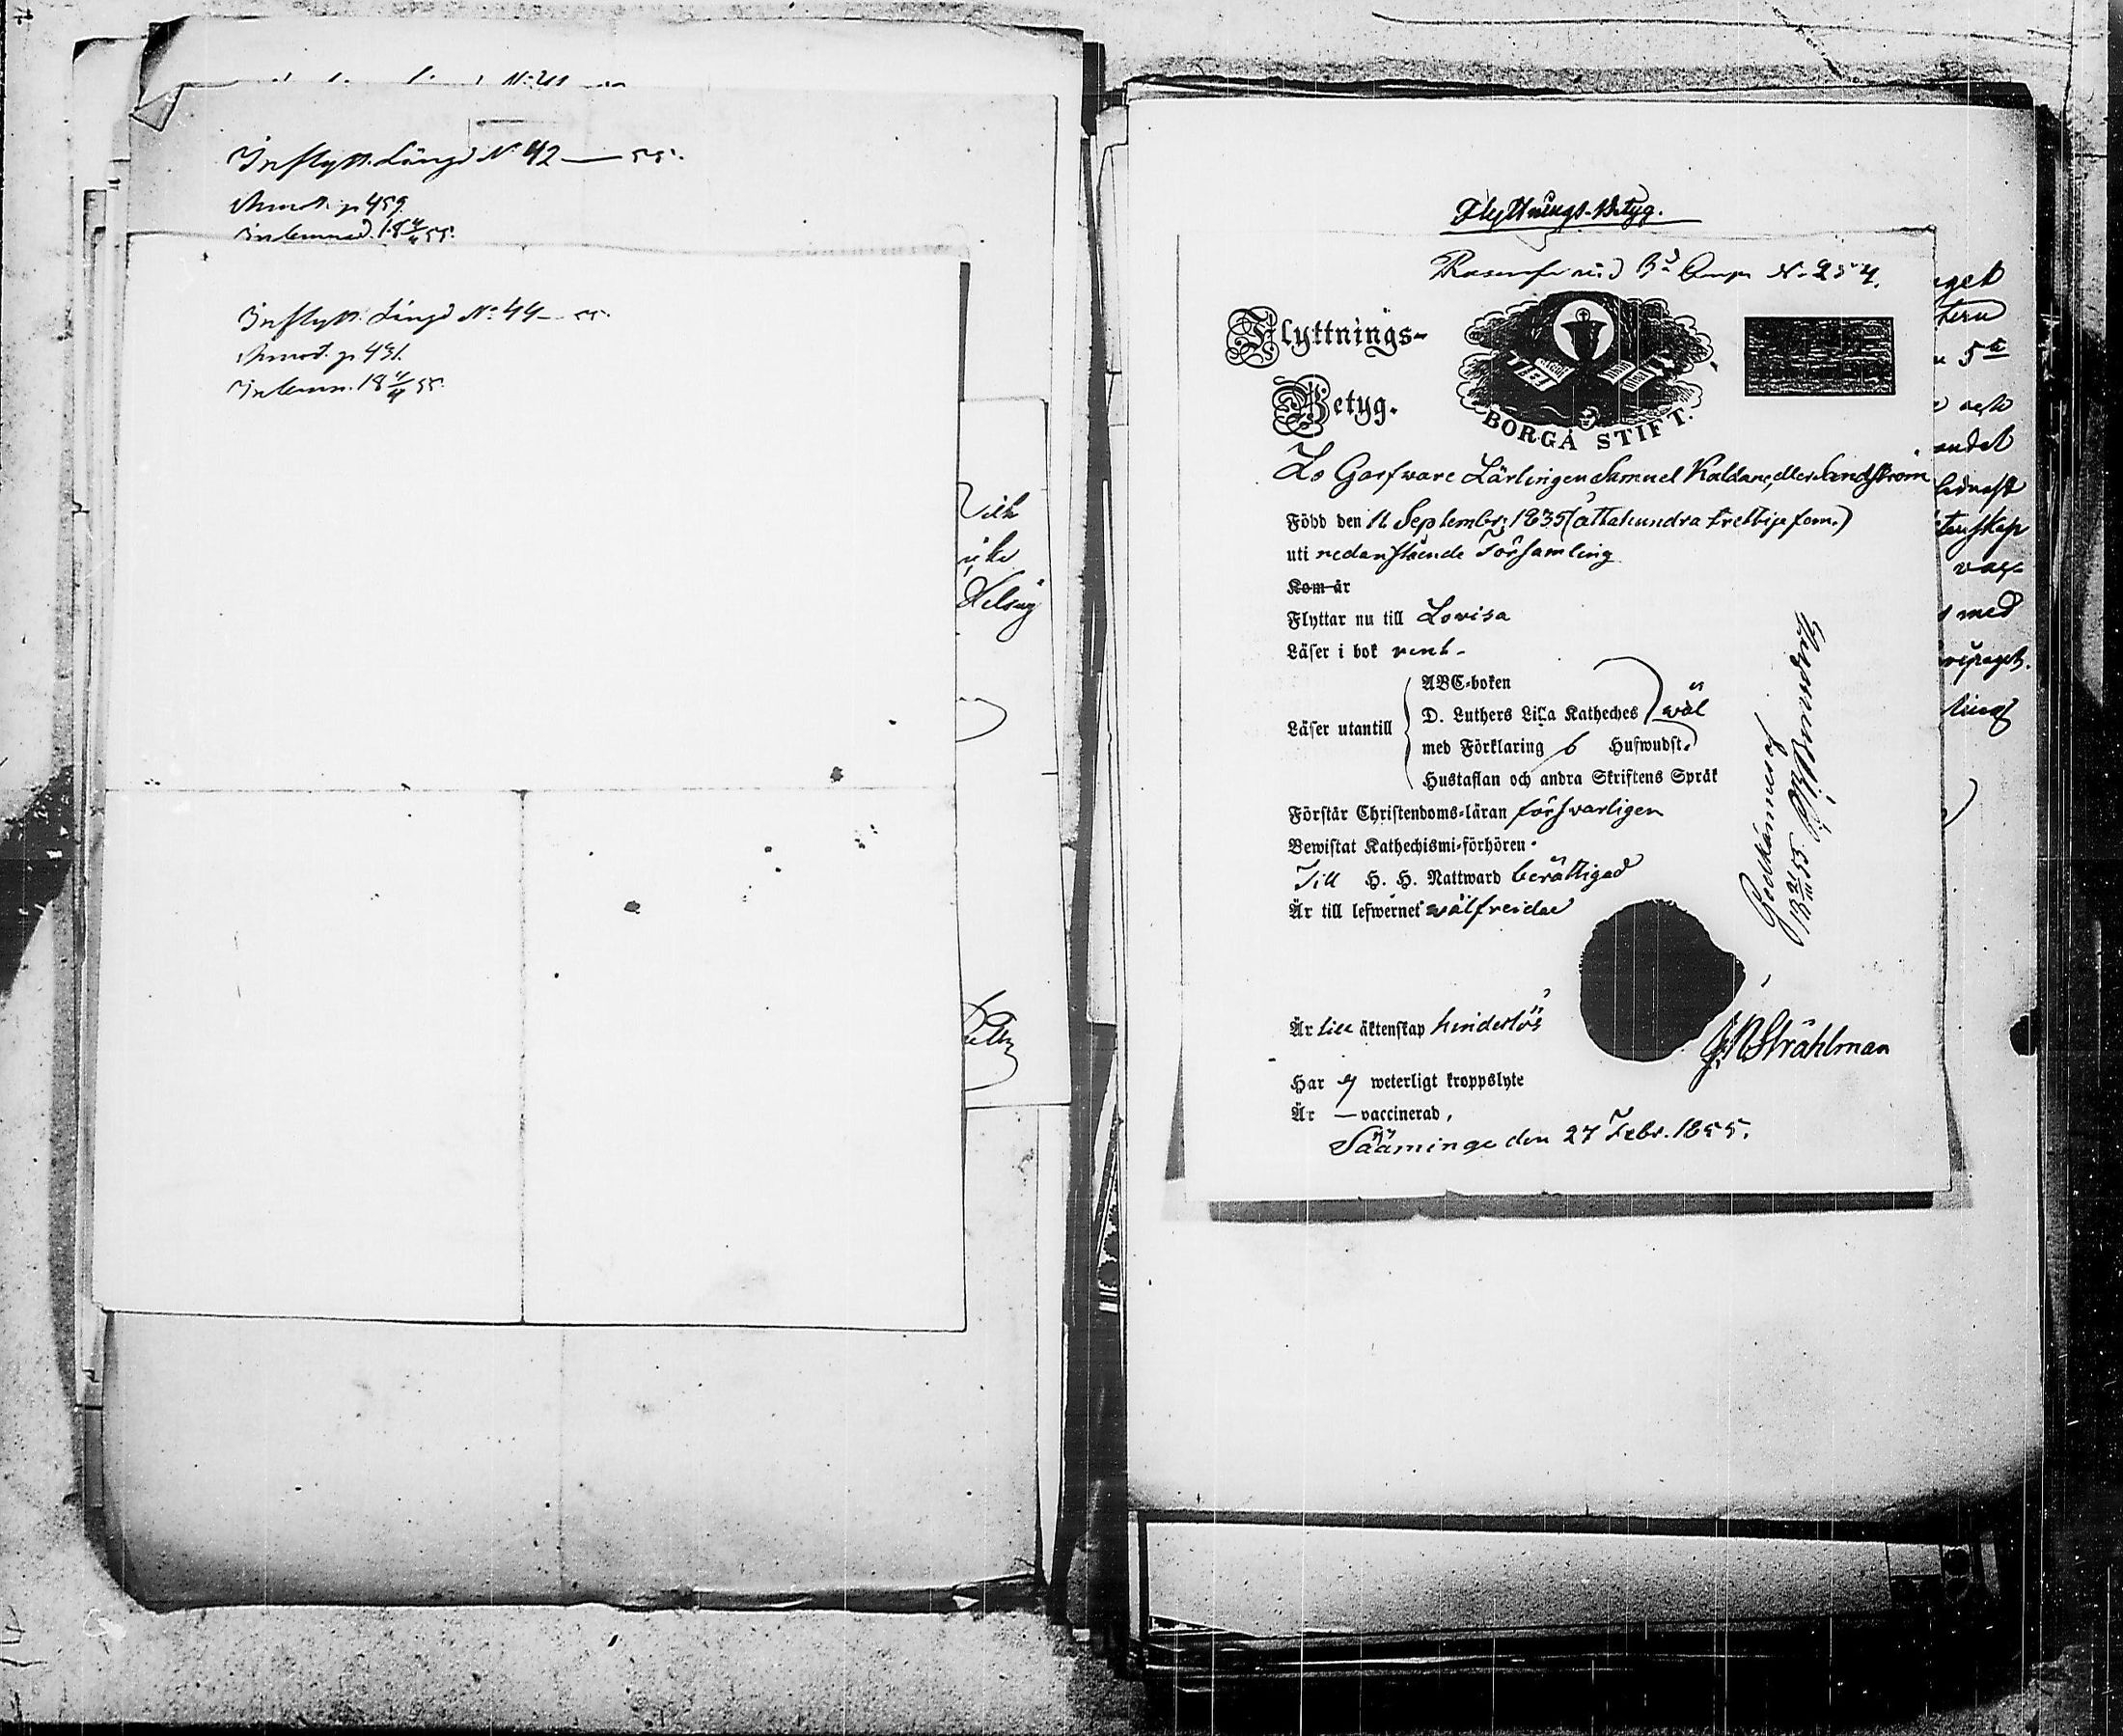 Inflytt. Längd N:o 42 — 55.
p 459.
Inlemnad. 18 4/4 55.
Inflytt. Längd N:o 44 — 55.
p 491.
Inlemn. 18 4/4 55.
Helsing
Flyttnings-Betyg.
N:o 254.
Flyttnings-
Betyg.
BORGÅ STIFT.
Garfware Lärlingen Samuel Kaldane, eller Sandström
Född den 11 September 1835 (åttahundra trettije fem.)
uti nedanstående Församling
Kom år
Flyttar nu till Lovisa
Läser i bok rent.
ABC-boken
Läser utantill D. Luthers Lilla Katheches wäl
med Förklaring 6 Hufwudst.
Hustaflan och andra Skriftens Språk
Förstår Christendoms-läran försvarligen
Bewistat Kathechismi-förhören
Till H. H. Nattward berättigad
Är till lefwernet wälfreidad
Är till äktenskap hinderlös
Har ej weterligt kroppslyte
Är — vaccinerad,
Sääminge den 27 Febr. 1855.
Stråhlman
Godkännes af
med